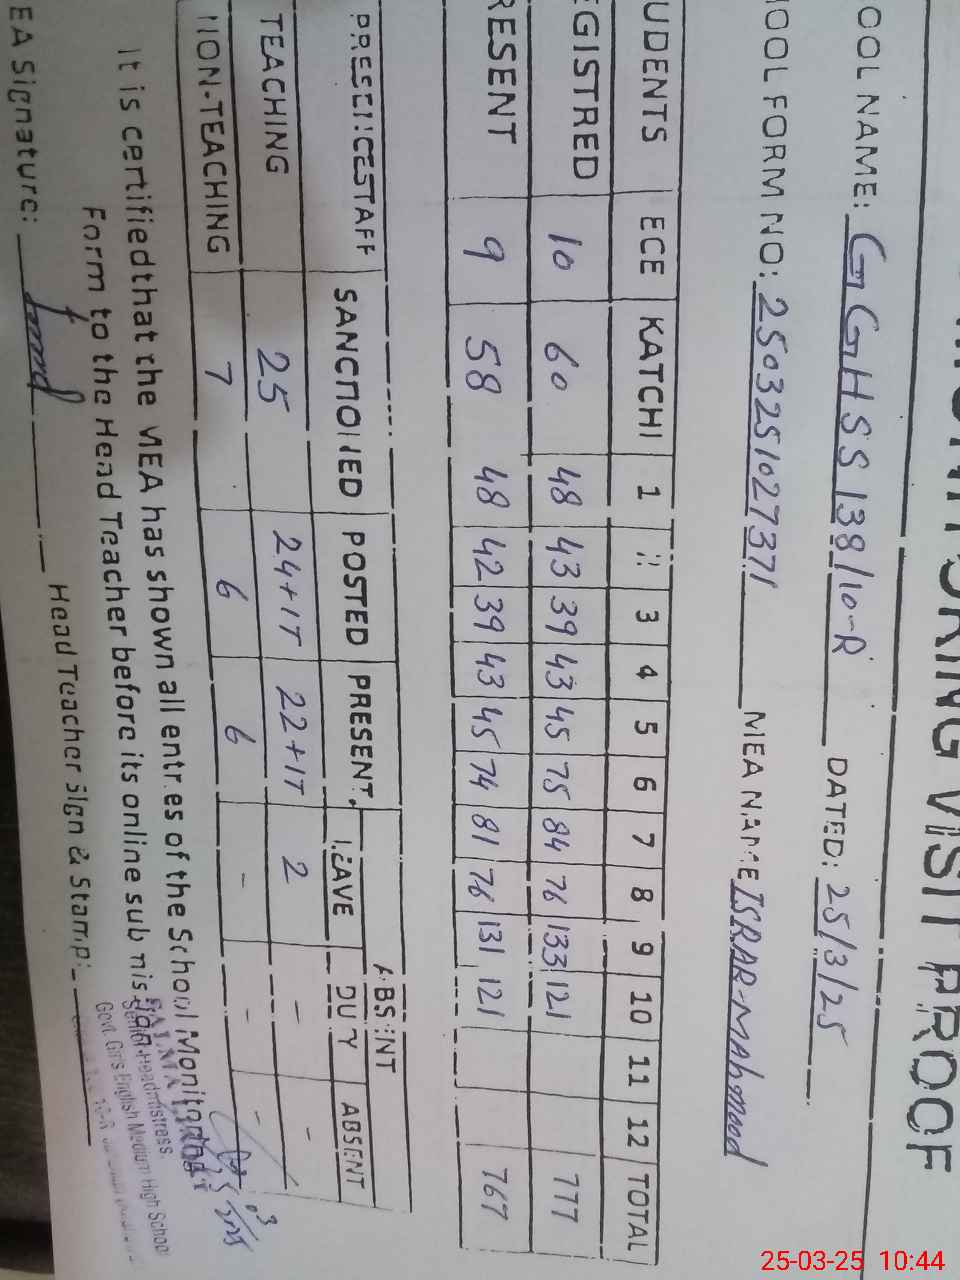 MONITORING VISIT PROOF
OOL NAME: GGHSS 138/10-R DATED: 25/3/25
HOOL FORM NO: 2503251027371 MEA NAME ISRAR-MAHMOOD
UDENTS ECE KATCHI 1 2 3 4 5 6 7 8 9 10 11 12 TOTAL
EGISTRED 10 60 48 43 39 43 45 75 84 76 133 121 777
RESENT 9 58 48 42 39 43 45 74 81 76 131 121 767
ABSENT
PRESENCESTAFF SANCTIONED POSTED PRESENT LEAVE DUTY ABSENT
TEACHING 25 24+1T 22+1T 2 - -
NON-TEACHING 7 6 6 - - -
It is certified that the MEA has shown all entries of the School Monitoring
Form to the Head Teacher before its online submission
EA Signature: Head Teacher Sign & Stamp:
Senior Headmistress
Govt. Girls English Medium High School
25-03-25 10:44